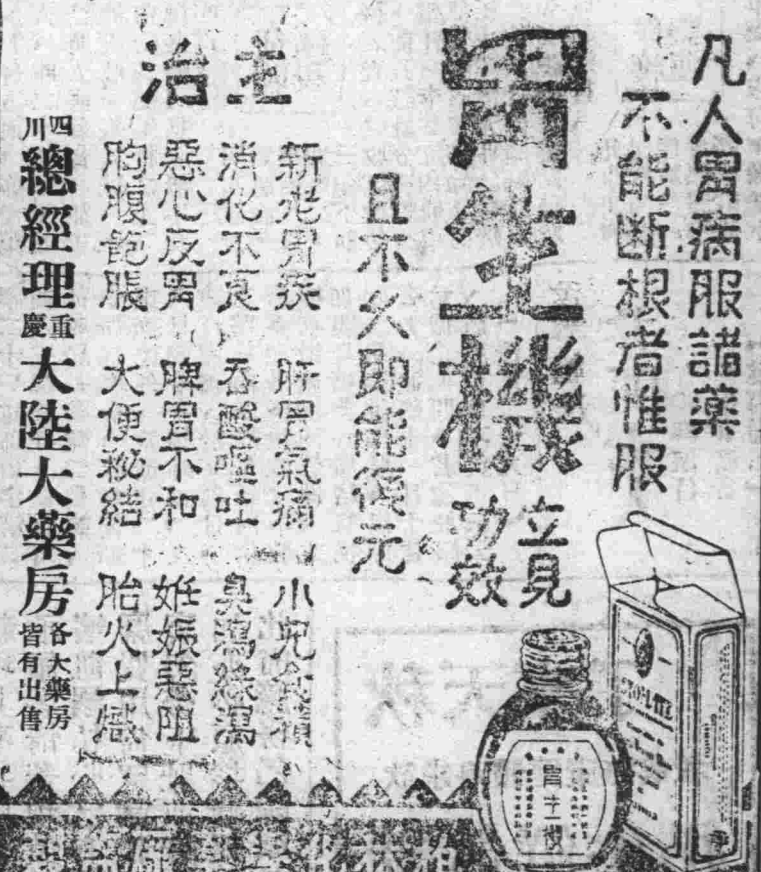 凡人胃病服諸藥
不能斷根者惟服
胃生機
立見
功效
且不久即能復元
主治
新老胃疾 肝胃氣痛 小兒食積
消化不良 吞酸嘔吐
惡心反胃 脾胃不和 妊娠惡阻
胸腹飽脹 大便秘結 胎火上熾
四川
總經理
重慶
大陸大藥房
各大藥房
皆有出售
胃生機
柏林化學藥廠監製